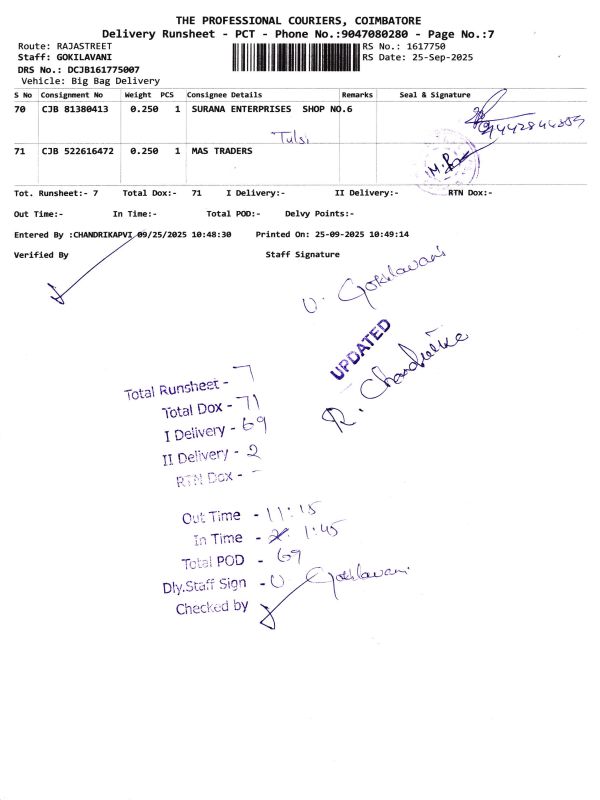 THE PROFESSIONAL COURIERS, COIMBATORE
Delivery Runsheet - PCT - Phone No.:9047080280 - Page No.:7
Route: RAJASTREET RS No.: 1617750
Staff: GOKILAVANI RS Date: 25-Sep-2025
DRS No.: DCJB161775007
Vehicle: Big Bag Delivery
S No Consignment No Weight PCS Consignee Details Remarks Seal & Signature
70 CJB 81380413 0.250 1 SURANA ENTERPRISES SHOP NO.6
Tulsi
71 CJB 522616472 0.250 1 MAS TRADERS
Tot. Runsheet:- 7 Total Dox:- 71 I Delivery:- II Delivery:- RTN Dox:-
Out Time:- In Time:- Total POD:- Delvy Points:-
Entered By :CHANDRIKAPVI 09/25/2025 10:48:30 Printed On: 25-09-2025 10:49:14
Verified By Staff Signature
U. Gokilavani
UPDATED
R. Chandrika
Total Runsheet - 7
Total Dox - 71
I Delivery - 69
II Delivery - 2
RTN Dox - -
Out Time - 11:15
In Time - 1:45
Total POD - 69
Dly.Staff Sign - U Gokilavani
Checked by